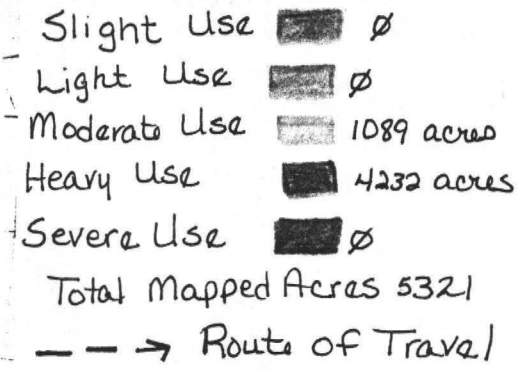 Slight Use Ø
Light Use Ø
Moderate Use 1089 acres
Heavy Use 4232 acres
Severe Use Ø
Total Mapped Acres 5321
Route of Travel